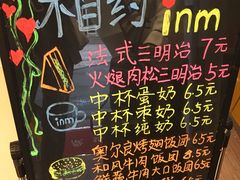 相约 inm
法式三明治 7元
火腿肉松三明治 5元
inm
中杯蛋奶 6.5元
中杯枣奶 6.5元
中杯纯奶 6.5元
奥尔良烤翅饭团 6.5元
和风牛肉饭团 8.5元